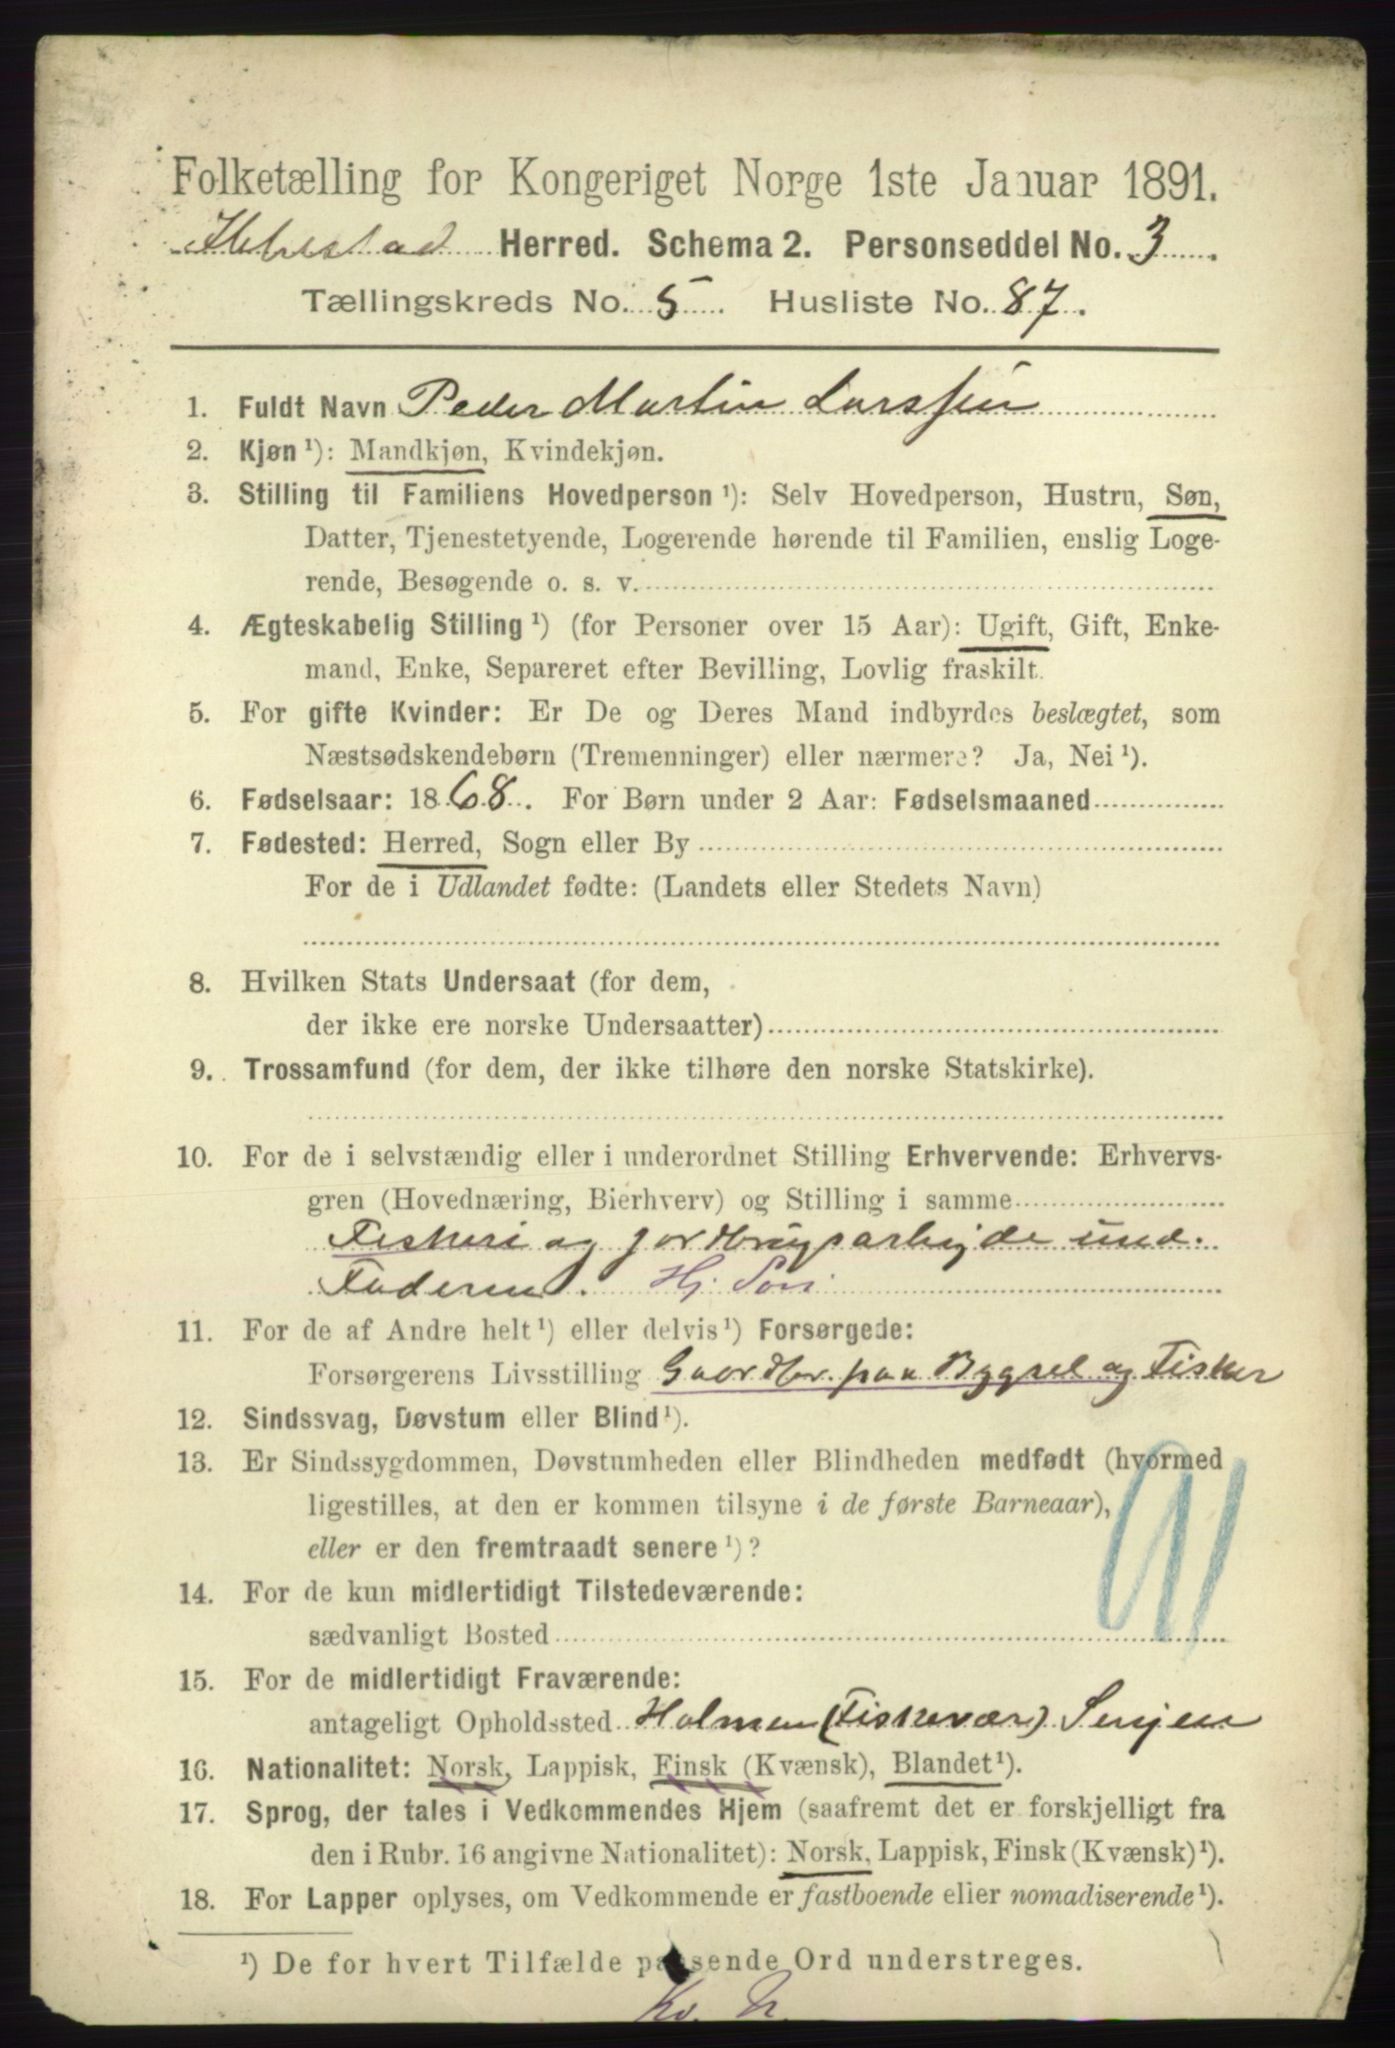 Folketælling for Kongeriget Norge 1ste Januar 1891.
Ibbestad Herred. Schema 2. Personseddel No. 3.
Tællingskreds No. 5. Husliste No. 87.
1. Fuldt Navn Peder Martin Larssen
2. Kjøn ¹): Mandkjøn, Kvindekjøn.
3. Stilling til Familiens Hovedperson ¹): Selv Hovedperson, Hustru, Søn,
Datter, Tjenestetyende, Logerende hørende til Familien, enslig Loge-
rende, Besøgende o. s. v.
4. Ægteskabelig Stilling ¹) (for Personer over 15 Aar): Ugift, Gift, Enke-
mand, Enke, Separeret efter Bevilling, Lovlig fraskilt.
5. For gifte Kvinder: Er De og Deres Mand indbyrdes beslægtet, som
Næstsødskendebørn (Tremenninger) eller nærmere? Ja, Nei ¹).
6. Fødselsaar: 1868. For Børn under 2 Aar: Fødselsmaaned
7. Fødested: Herred, Sogn eller By
For de i Udlandet fødte: (Landets eller Stedets Navn)
8. Hvilken Stats Undersaat (for dem,
der ikke ere norske Undersaatter)
9. Trossamfund (for dem, der ikke tilhøre den norske Statskirke).
10. For de i selvstændig eller i underordnet Stilling Erhvervende: Erhvervs-
gren (Hovednæring, Bierhverv) og Stilling i samme
Fiskeri og jordbrugsarbejde und.
Faderen. Hj. Søn
11. For de af Andre helt ¹) eller delvis ¹) Forsørgede:
Forsørgerens Livsstilling Gaardbr. paa Bygsel og Fisker
12. Sindssvag, Døvstum eller Blind ¹).
13. Er Sindssygdommen, Døvstumheden eller Blindheden medfødt (hvormed
ligestilles, at den er kommen tilsyne i de første Barneaar),
eller er den fremtraadt senere ¹)?
91
14. For de kun midlertidigt Tilstedeværende:
sædvanligt Bosted
15. For de midlertidigt Fraværende:
antageligt Opholdssted Holmen (Fiskevær) Senjen
16. Nationalitet: Norsk, Lappisk, Finsk (Kvænsk), Blandet ¹).
17. Sprog, der tales i Vedkommendes Hjem (saafremt det er forskjelligt fra
den i Rubr. 16 angivne Nationalitet): Norsk, Lappisk, Finsk (Kvænsk) ¹).
18. For Lapper oplyses, om Vedkommende er fastboende eller nomadiserende ¹).
¹) De for hvert Tilfælde passende Ord understreges.
Kv. N.